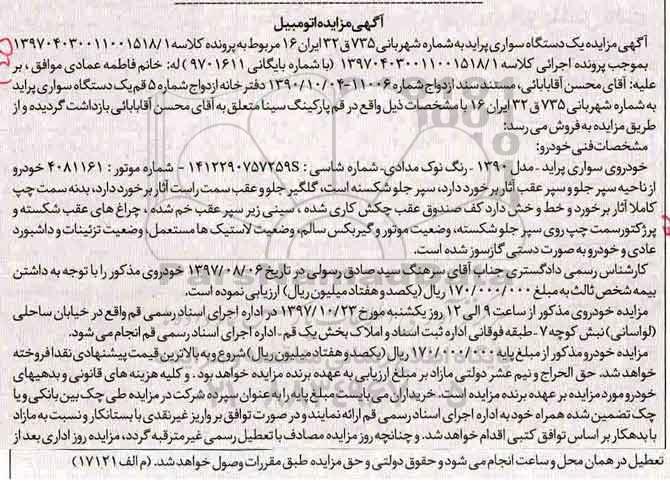 آگهی مزایده اتومبیل
آگهی مزایده یک دستگاه سواری پراید به شماره شهربانی ۷۳۵ ق ۳۲ ایران ۱۶ مربوط به پرونده کلاسه ۱۳۹۷۰۴۰۳۰۰۱۱۰۰۱۵۱۸/۱
بموجب پرونده اجرائی کلاسه ۱۳۹۷۰۴۰۳۰۰۱۱۰۰۱۵۱۸/۱ (با شماره بایگانی ۹۷۰۱۶۱۱) له: خانم فاطمه عمادی موافق ، بر
علیه: آقای محسن آقابابائی، مستند سند ازدواج شماره ۱۱۰۰۶-۱۳۹۰/۱۰/۰۴ دفترخانه ازدواج شماره ۵ قم یک دستگاه سواری پراید
به شماره شهربانی ۷۳۵ ق ۳۲ ایران ۱۶ با مشخصات ذیل واقع در قم پارکینگ سینا متعلق به آقای محسن آقابابائی بازداشت گردیده و از
طریق مزایده به فروش می رسد:
مشخصات فنی خودرو:
خودروی سواری پراید - مدل ۱۳۹۰ - رنگ نوک مدادی - شماره شاسی : S۱۴۱۲۲۹۰۷۵۷۲۵۹ - شماره موتور : ۴۰۸۱۱۶۱ خودرو
از ناحیه سپر جلو و سپر عقب آثار برخورد دارد، سپر جلو شکسته است، گلگیر جلو و عقب سمت راست آثار برخورد دارد، بدنه سمت چپ
کاملا آثار برخورد و خط و خش دارد کف صندوق عقب چکش کاری شده ، سینی زیر سپر عقب خم شده ، چراغ های عقب شکسته و
پرژکتور سمت چپ روی سپر جلو شکسته، وضعیت موتور و گیربکس سالم، وضعیت لاستیک ها مستعمل، وضعیت تزئینات و داشبورد
عادی و خودرو به صورت دستی گازسوز شده است.
کارشناس رسمی دادگستری جناب آقای سرهنگ سید صادق رسولی در تاریخ ۱۳۹۷/۰۸/۰۶ خودروی مذکور را با توجه به داشتن
بیمه شخص ثالث به مبلغ ۱۷۰/۰۰۰/۰۰۰ ریال (یکصد و هفتاد میلیون ریال) ارزیابی نموده است.
مزایده خودروی مذکور از ساعت ۹ الی ۱۲ روز یکشنبه مورخ ۱۳۹۷/۱۰/۲۳ در اداره اجرای اسناد رسمی قم واقع در خیابان ساحلی
(لواسانی) نبش کوچه ۷ - طبقه فوقانی اداره ثبت اسناد و املاک بخش یک قم - اداره اجرای اسناد رسمی قم انجام می شود.
مزایده خودرو مذکور از مبلغ پایه ۱۷۰/۰۰۰/۰۰۰ ریال (یکصد و هفتاد میلیون ریال) شروع و به بالاترین قیمت پیشنهادی نقدا فروخته
خواهد شد. حق الحراج و نیم عشر دولتی مازاد بر مبلغ ارزیابی به عهده برنده مزایده خواهد بود . و کلیه هزینه های قانونی و بدهیهای
خودرو مورد مزایده بر عهده برنده مزایده است. خریداران می بایست مبلغ پایه را به عنوان سپرده شرکت در مزایده طی چک بین بانکی و یا
چک تضمین شده همراه خود به اداره اجرای اسناد رسمی قم ارائه نمایند و در صورت توافق بر واریز غیر نقدی با بستانکار و نسبت به مازاد
با بدهکار بر اساس توافق کتبی اقدام خواهد شد. و چنانچه روز مزایده مصادف با تعطیل رسمی غیر مترقبه گردد، مزایده روز اداری بعد از
تعطیل در همان محل و ساعت انجام می شود و حقوق دولتی و حق مزایده طبق مقررات وصول خواهد شد. (م الف ۱۷۱۲۱)